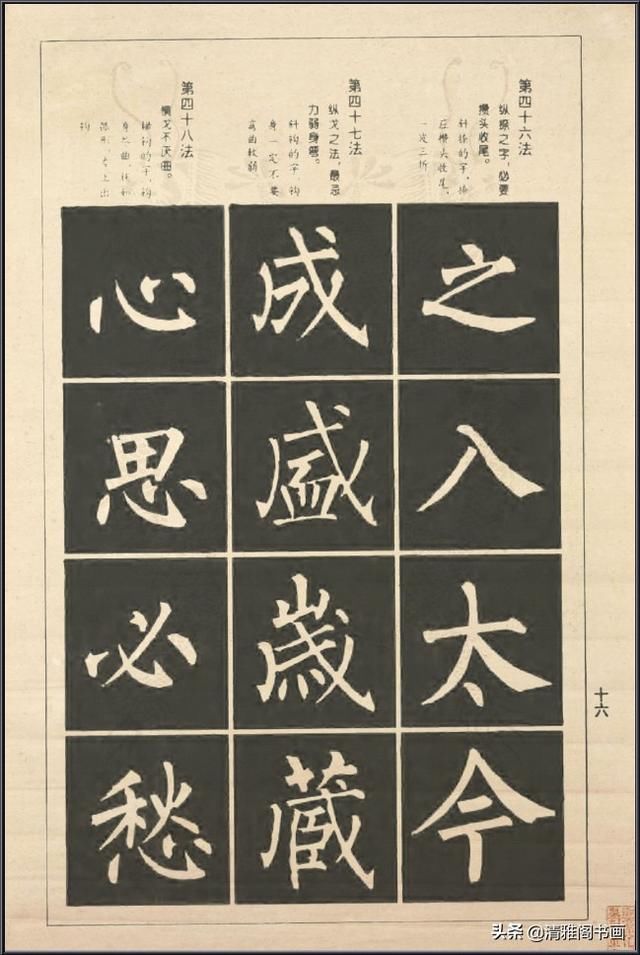 第四十六法
纵捺之字,必要
攒头收尾。
斜捺的字,捺
应攒头收尾,
三折
第四十七法
纵戈之法,最忌
力弱身弯。
斜钩的字,钩
身一定不要
弯曲软弱。
第四十八法
横戈不厌曲。
横钩的字,钩
上出
钩
之
八
太
今
成
盛
歲
藏
心
思
必
愁
十六
头条@清雅阁书画